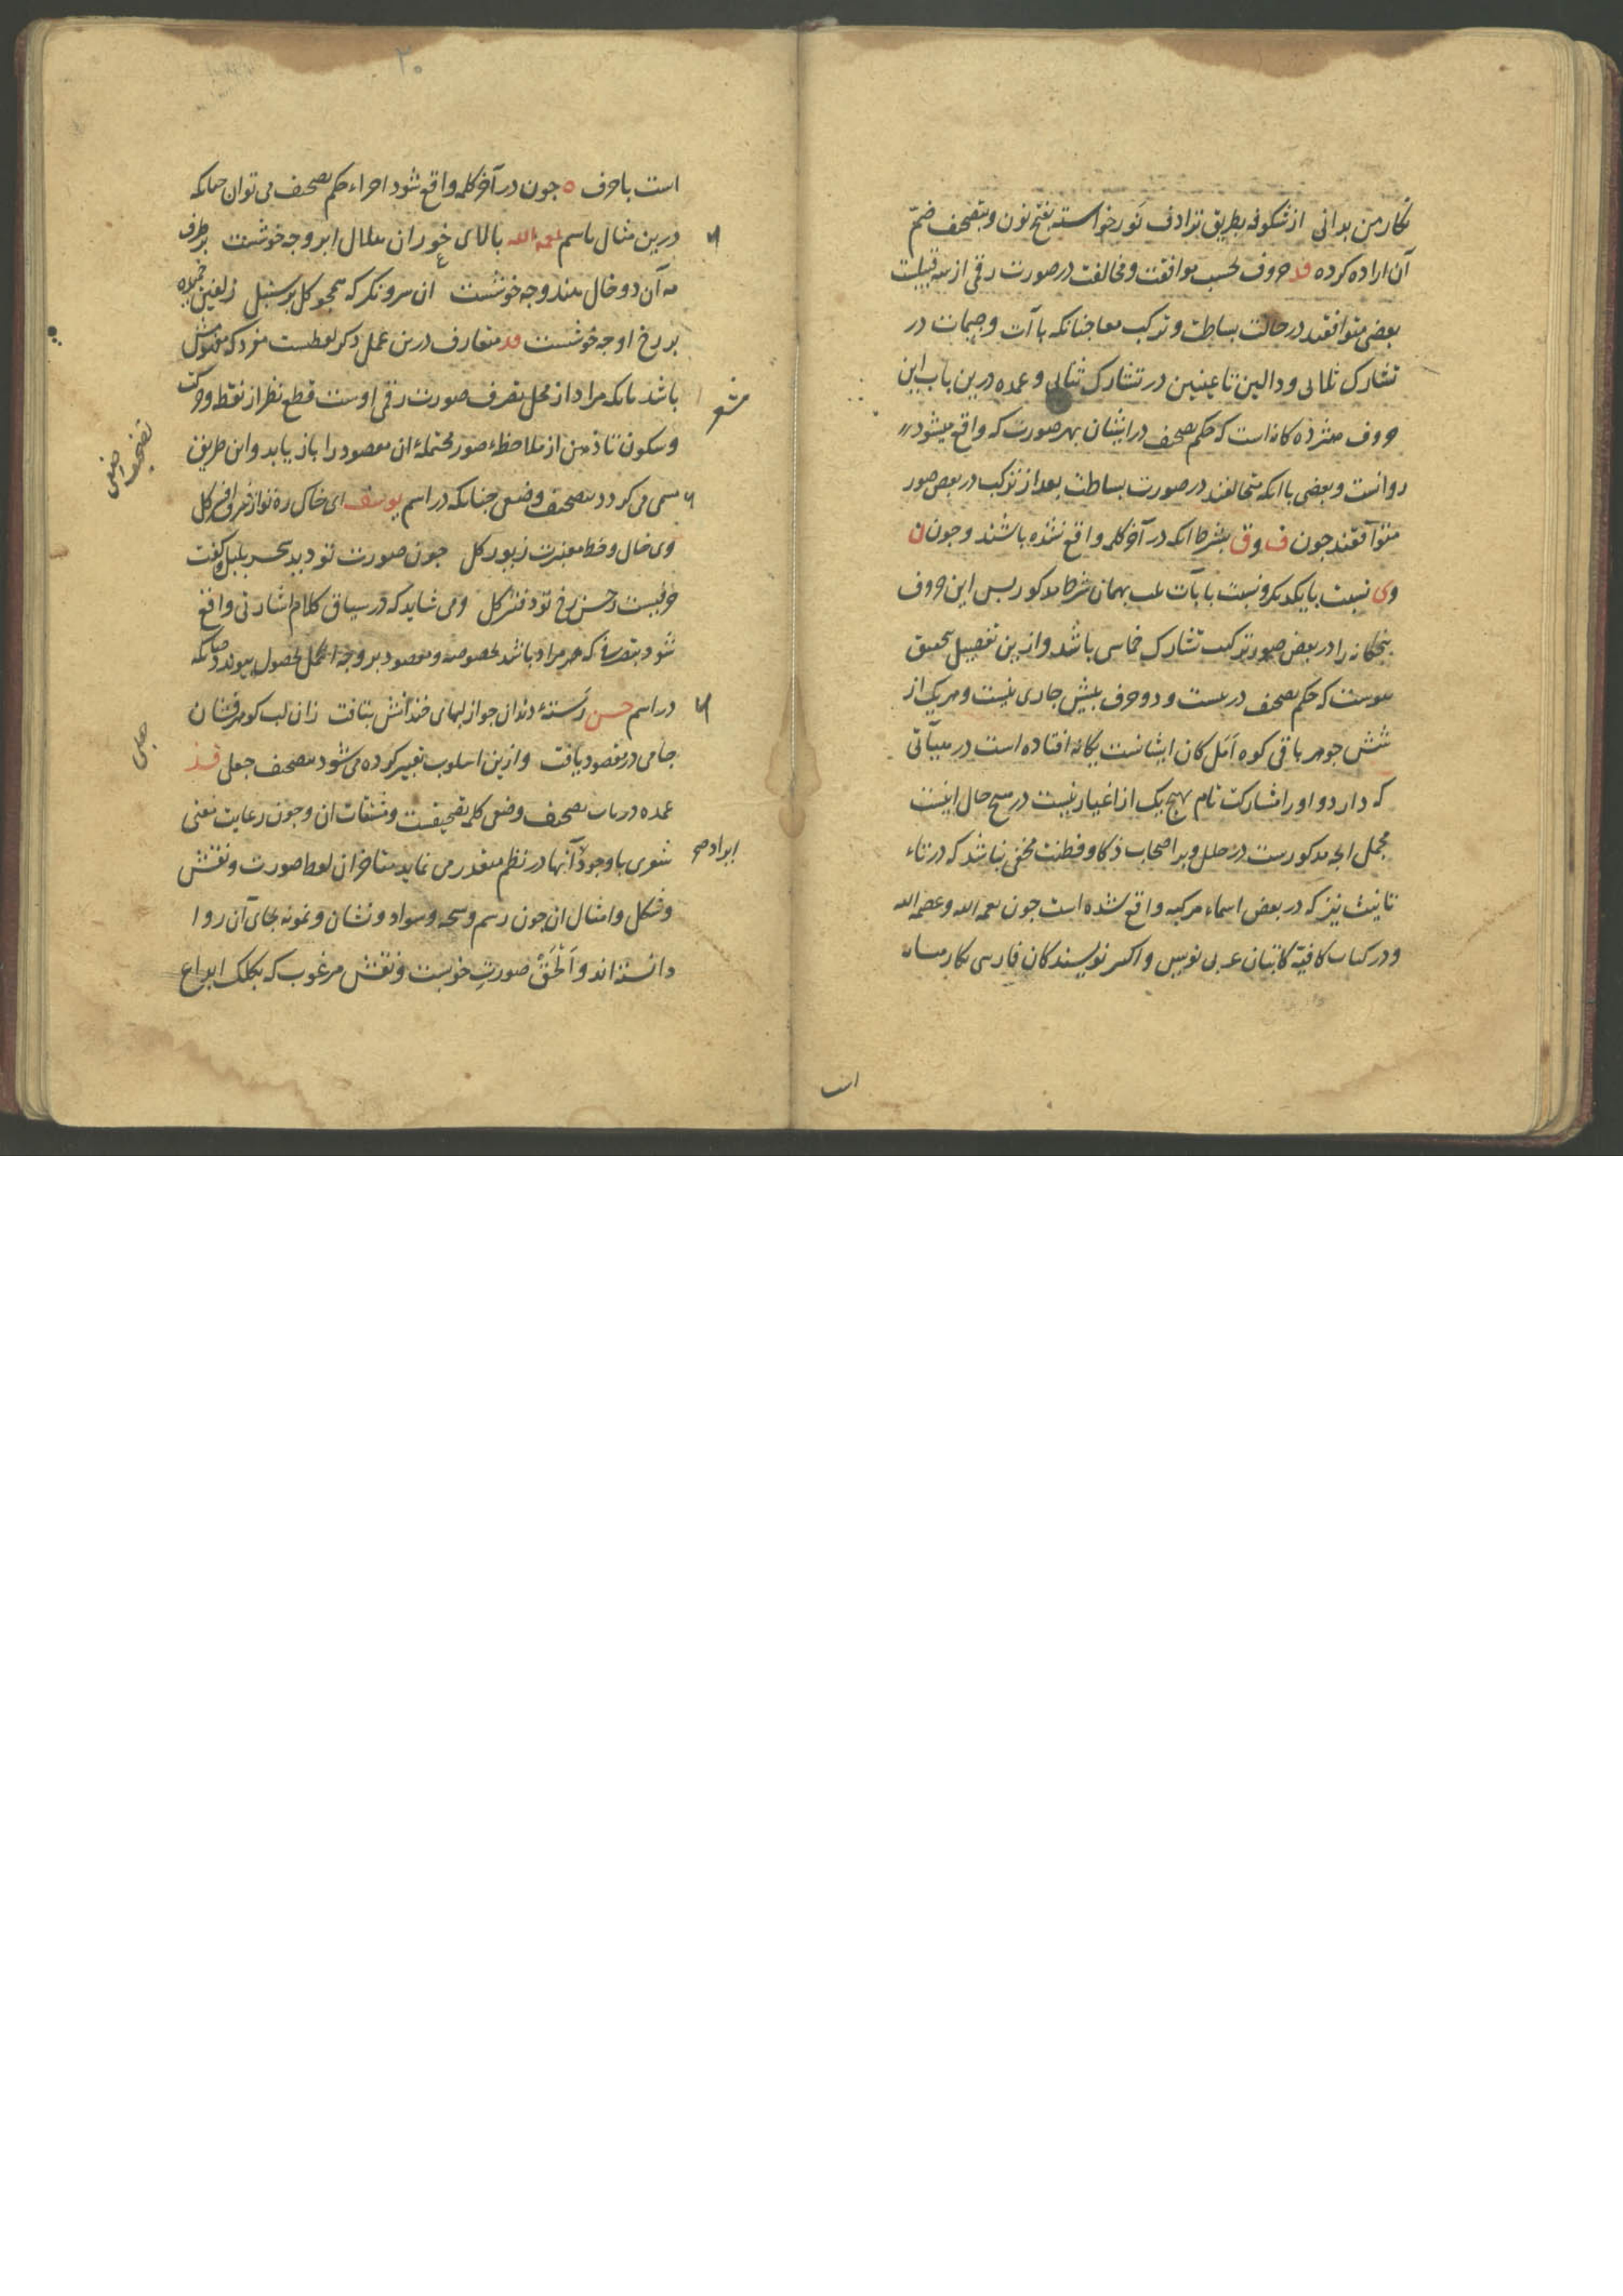 نکار من بدانی از شکوفه بطریق ترادف نَور خواسته بفتح نون و بتصحیف ضمّ
آن اراده کرده قد حروف بحسب موافقت و مخالفت در صورت رقمی از سه قبیلست
بعضی متوافقند در حالت بساطت و ترکیب معا جنانکه باآت و جیمات در
تشارک ثلاثی و دالین تا عینین در تشارک ثنایی و عمده درین باب این
حروف کانه است که حکم تصحیف در ایشان بهر صورت که واقع میشود
روانست و بعضی با انکه متخالفند در صورت بساطت بعد از ترکیب در بعض صور
متوافقند جون ف و ق بشرط انکه در آخر کلمه واقع نشده باشند و جون ن
و ی نسبت با یکدیکر و نسبت با باآت بهمان شرط مذکور بس این حروف
بنجکانه را در بعض صور ترکیب تشارک خماسی باشد و ازین تفصیل تحقیق
بیوست که حکم تصحیف در بیست و دو حرف بیش جاری نیست و هر یک از
شش جوهر باقی کوه امَل کان ایشانست یکانه افتاده است در هیأتی
که دارد و او را مشارکت تام بهیج یک از اغیار نیست در هیج حال اینست
مجمل انجه مذکورست در حلل و بر اصحاب ذکا و فطنت مخفی نباشد که در تاء
تانیث نیز که در بعض اسماء مرکبه واقع شده است جون نعمه الله و عصمه الله
و در کتاب کافیة کاتبان عربی نویس و اکثر نویسندکان فارسی نکار
اس
۲۰
است با حرف ه جون در آخر کلمه واقع شود اجراء حکم تصحیف می توان جنانکه
درین مثال باسم نعمه الله بالای خور ان هلال ابرو جه خوشست بر طرف
مه آن دو خال هندو جه خوشست ان سرو نکر که همجو کل بر سنبل زلفین
بر رخ او جه خوشست قد متعارف درین عمل ذکر لفظیست مفرد که مفهومش
باشد بانکه مراد از محل تصرف صورت رقمی اوست قطع نظر از نقط و حرکت
و سکون تا ذهن از ملاحظهٔ صور محتملهٔ ان مقصود را باز یابد و این طریق
مسمی می کردد بتصحیف وضعی جنانکه در اسم یوسف ای خاک ره تو از شرف افسر کل
وی خال و خط معنبرت زیور کل جون صورت تو دید سحر بلبل کفت
حرفیست ز حسن رخ تو دفتر کل و می شاید که در سیاق کلام اشارتی واقع
شود بنقطهٔ که هر مراد باشد بخصوصه و مقصود بر وجه اکمل بحصول بیوندد جنانکه
در اسم حسن رُستهٔ دندان جو از لبهای خندانش بتافت زان لب کوهرفشان
جامی در مقصود یافت و ازین اسلوب تعبیر کرده می شود بتصحیف جعلی قد
عمده در باب تصحیف وضعی کلمه تصحیفست و مشتقات ان و جون رعایت معنی
شعری با وجود آنها در نظم متعذر می نماید متاخران لفظ صورت و نقش
و شکل و امثال ان جون رسم و نسخه و سواد و نشان و نمونه بجای آن روا
دانسته اند و الْحَقّ صورتِ خوبست و نقش مرغوب که بکلک ابداع
تصحیف وضعی
جعلی
ایراد صح